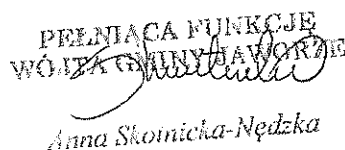 PEŁNIĄCA FUNKCJĘ
WÓJTA GMINY JAWORZE
Anna Skotnicka-Nędzka